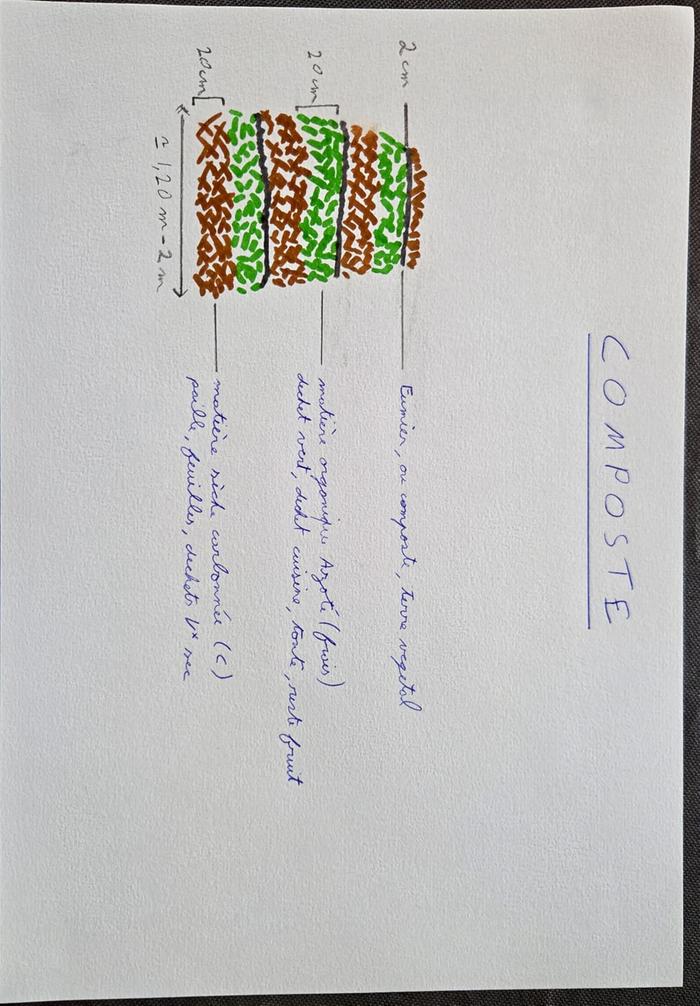 COMPOSTE
2 cm
Fumier, ou composte, terre vegetal
20 cm
matière organique Azoté (frais)
dechet vert, dechet cuisine, tonte, reste fruit
20cm
matière sèche carbonnée (C)
paille, feuilles, dechets Vx sec
≃ 1,20 m - 2 m